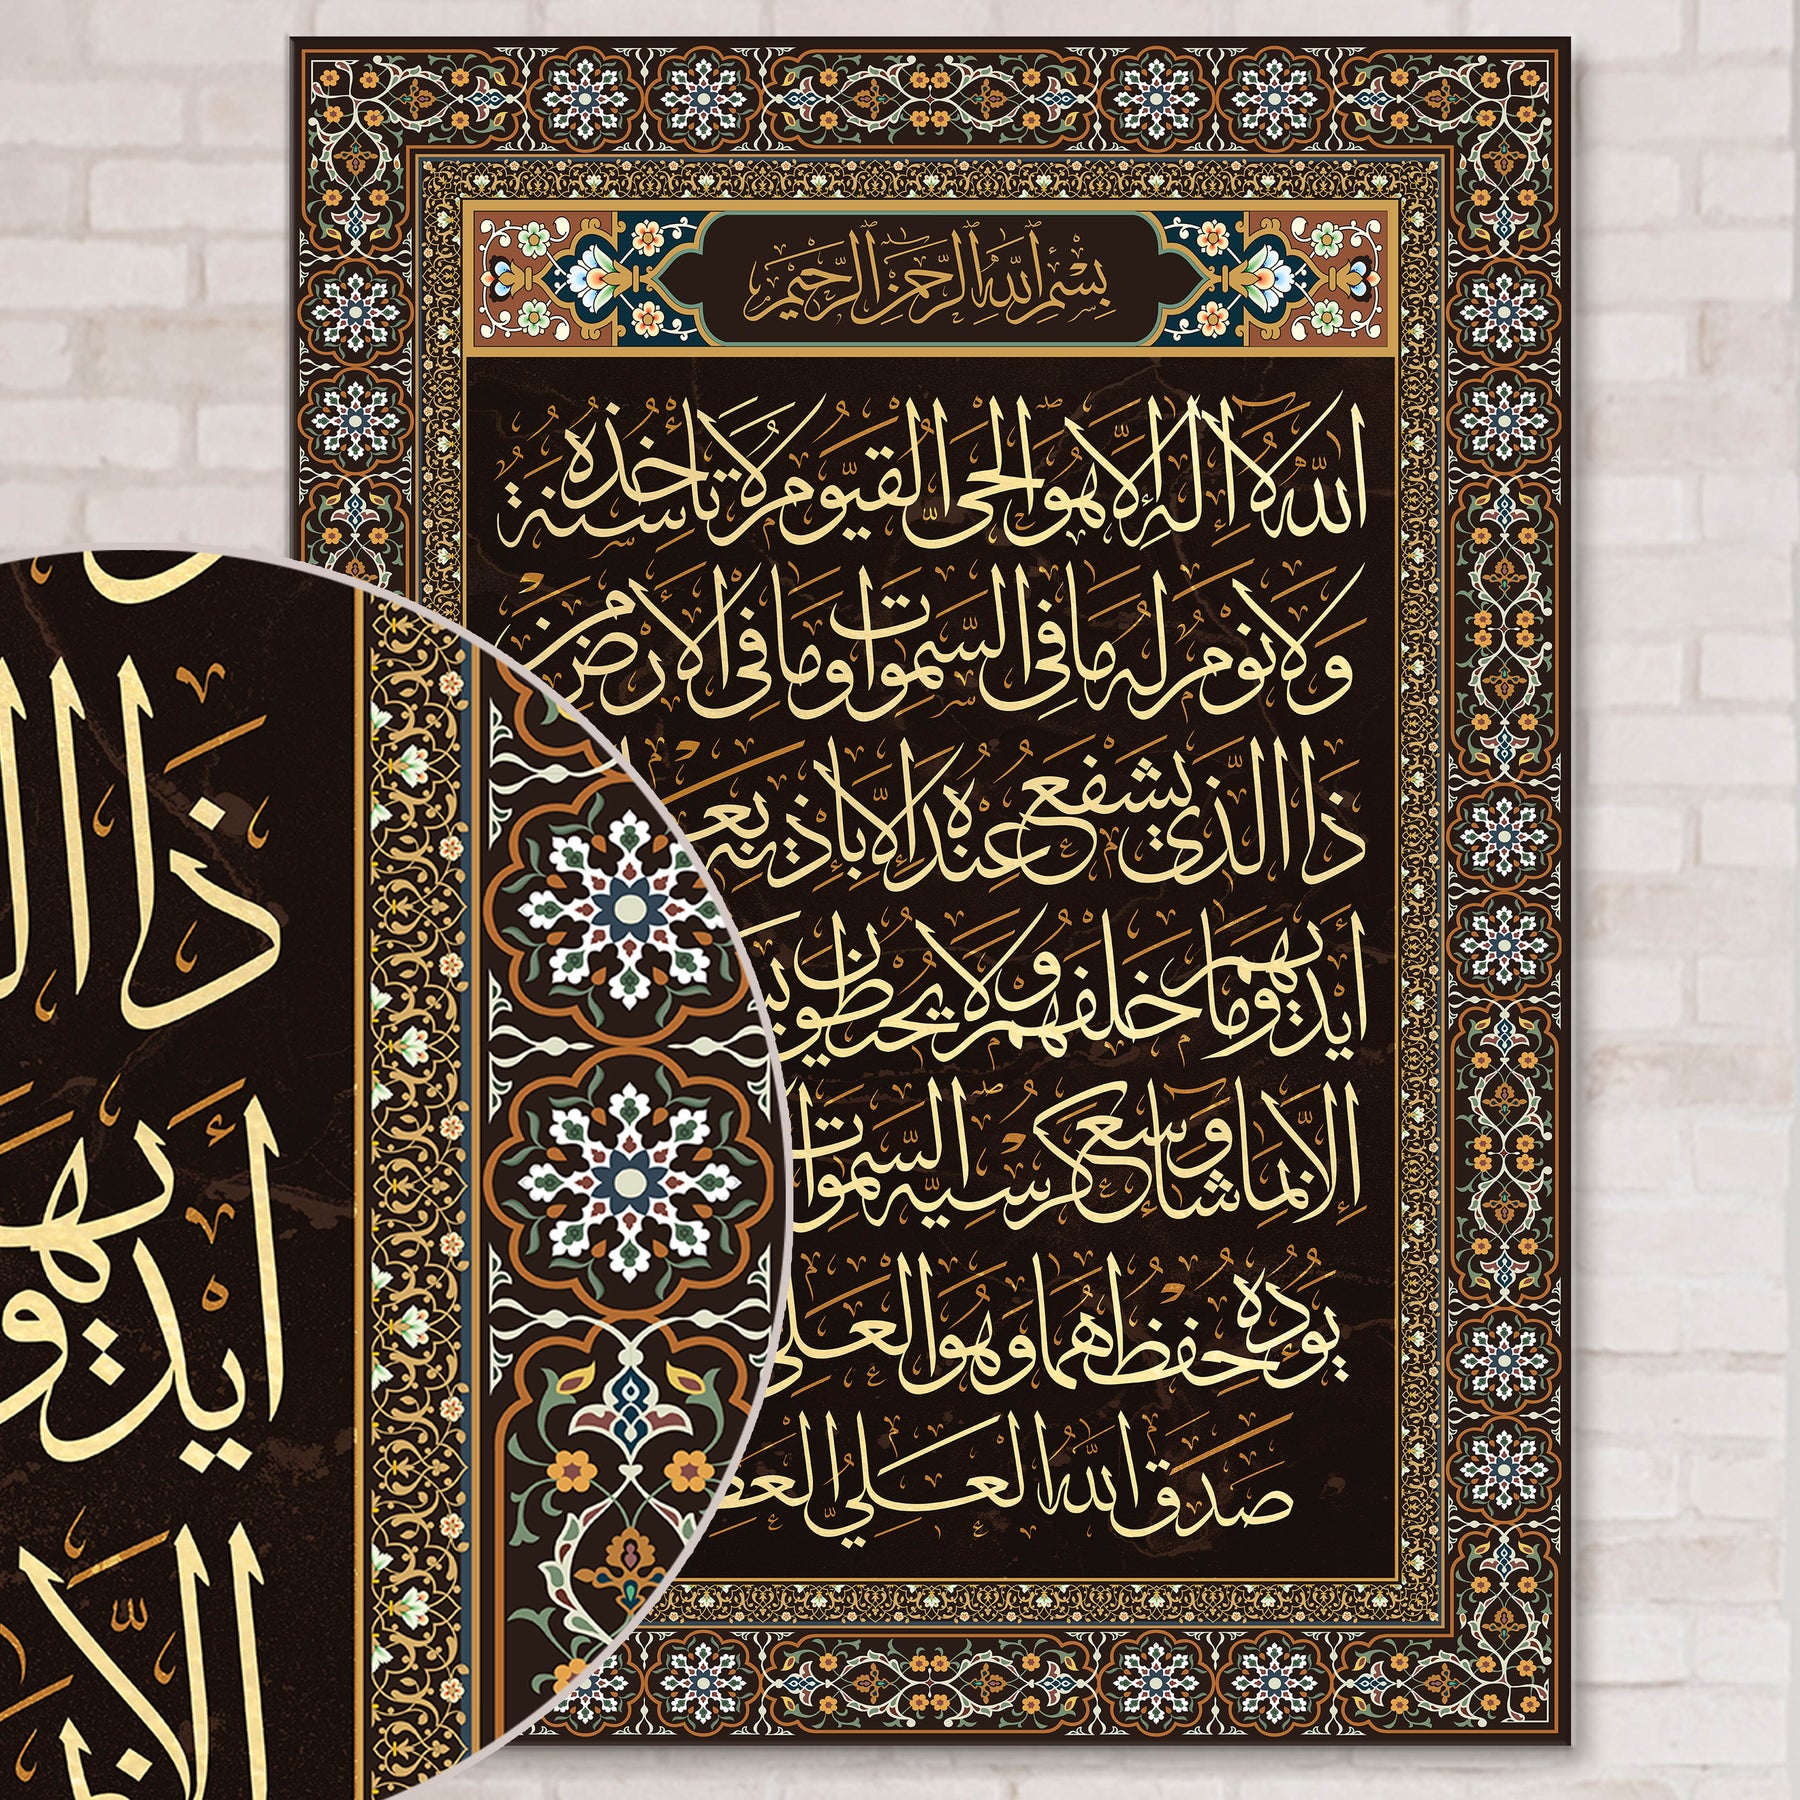 بِسْمِ اللَّهِ الرَّحْمَنِ الرَّحِيمِ
اَللّٰهُ لَا اِلٰهَ اِلَّا هُوَ الْحَىُّ الْقَيُّومُ لَا تَأْخُذُهُ سِنَةٌ
وَلَا نَوْمٌ لَهُ مَا فِى السَّمٰوَاتِ وَمَا فِى الْاَرْضِ مَنْ
ذَا الَّذِي يَشْفَعُ عِنْدَهُ اِلَّا بِإِذْنِهِ
أَيْدِيهِمْ وَمَا خَلْفَهُمْ وَلَا يُحِيطُونَ
اِلَّا بِمَا شَاءَ وَسِعَ كُرْسِيُّهُ السَّمٰوَاتِ
يَؤُدُهُ حِفْظُهُمَا وَهُوَ الْعَلِيُّ
صَدَقَ اللّٰهُ الْعَلِيُّ
ذَا